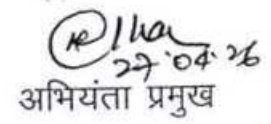 27.04.26
अभियंता प्रमुख